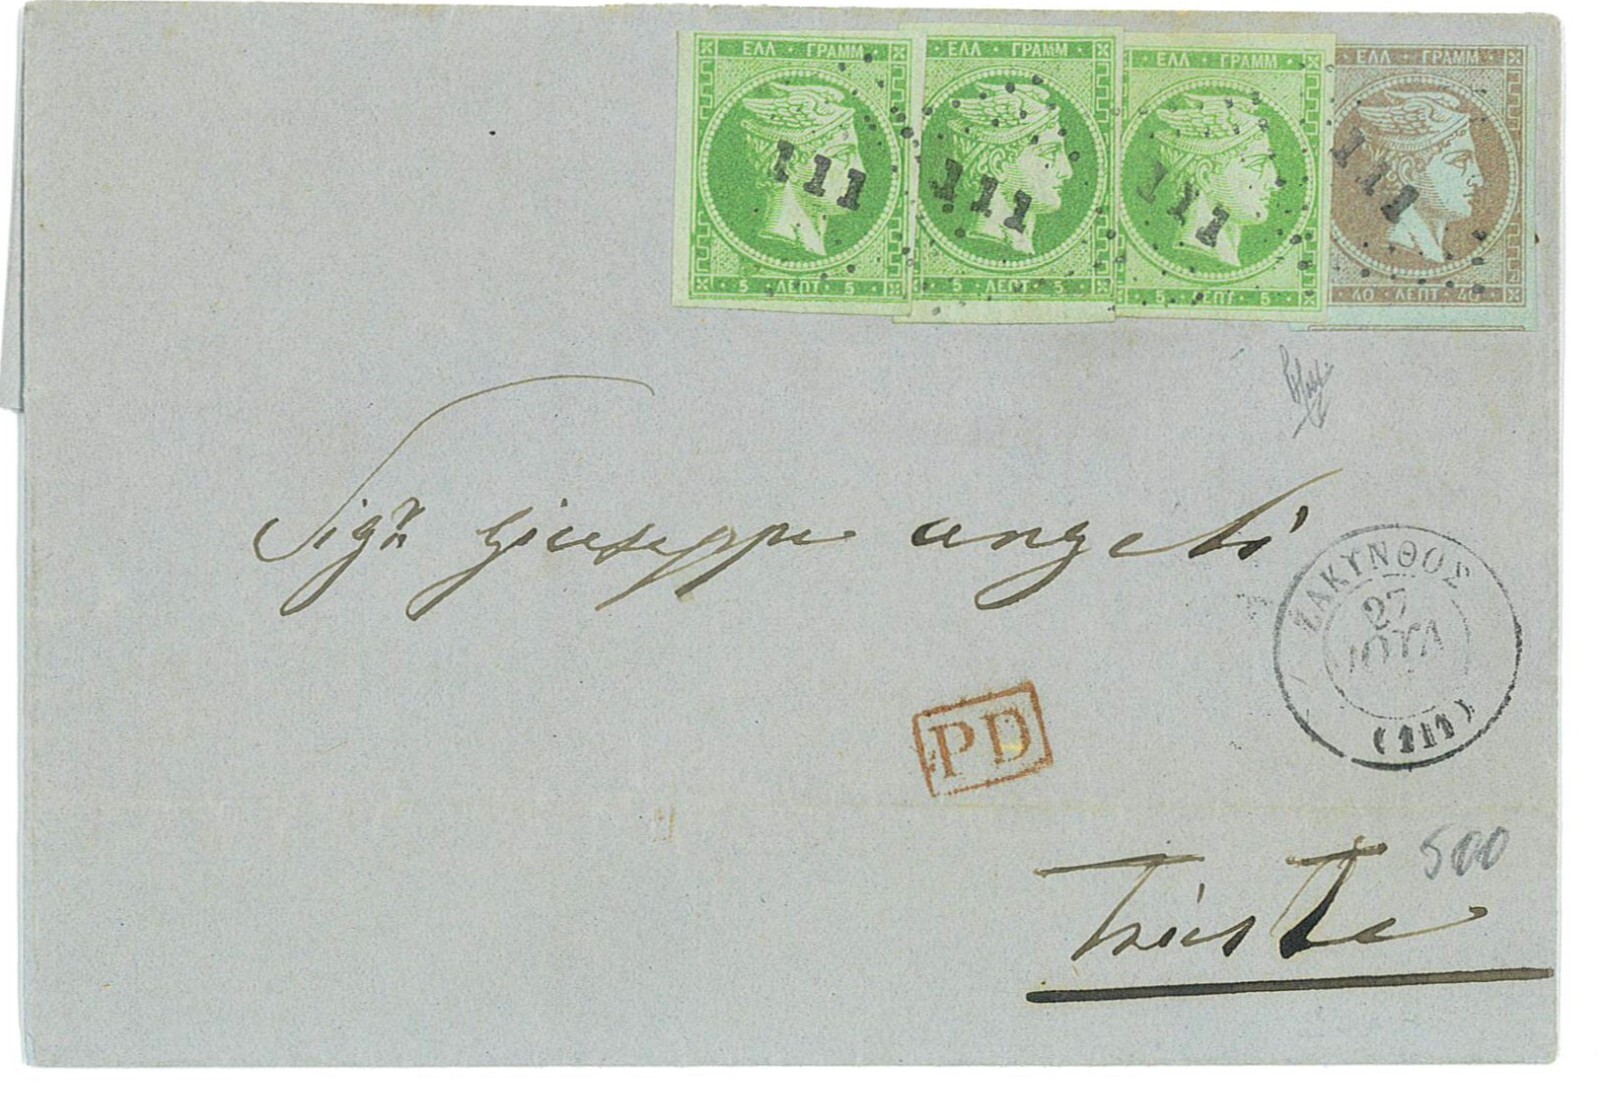 ΕΛΛ · ΓΡΑΜΜ ΕΛΛ · ΓΡΑΜΜ ΕΛΛ · ΓΡΑΜΜ ΕΛΛ · ΓΡΑΜΜ
111 111 111 111
5 · ΛΕΠΤ · 5 5 · ΛΕΠΤ · 5 5 · ΛΕΠΤ · 5 40 · ΛΕΠΤ · 40
Sigr Giuseppe Angeli
ΖΑΚΥΝΘΟΣ
27
ΙΟΥΛ
(111)
PD
500
Trieste